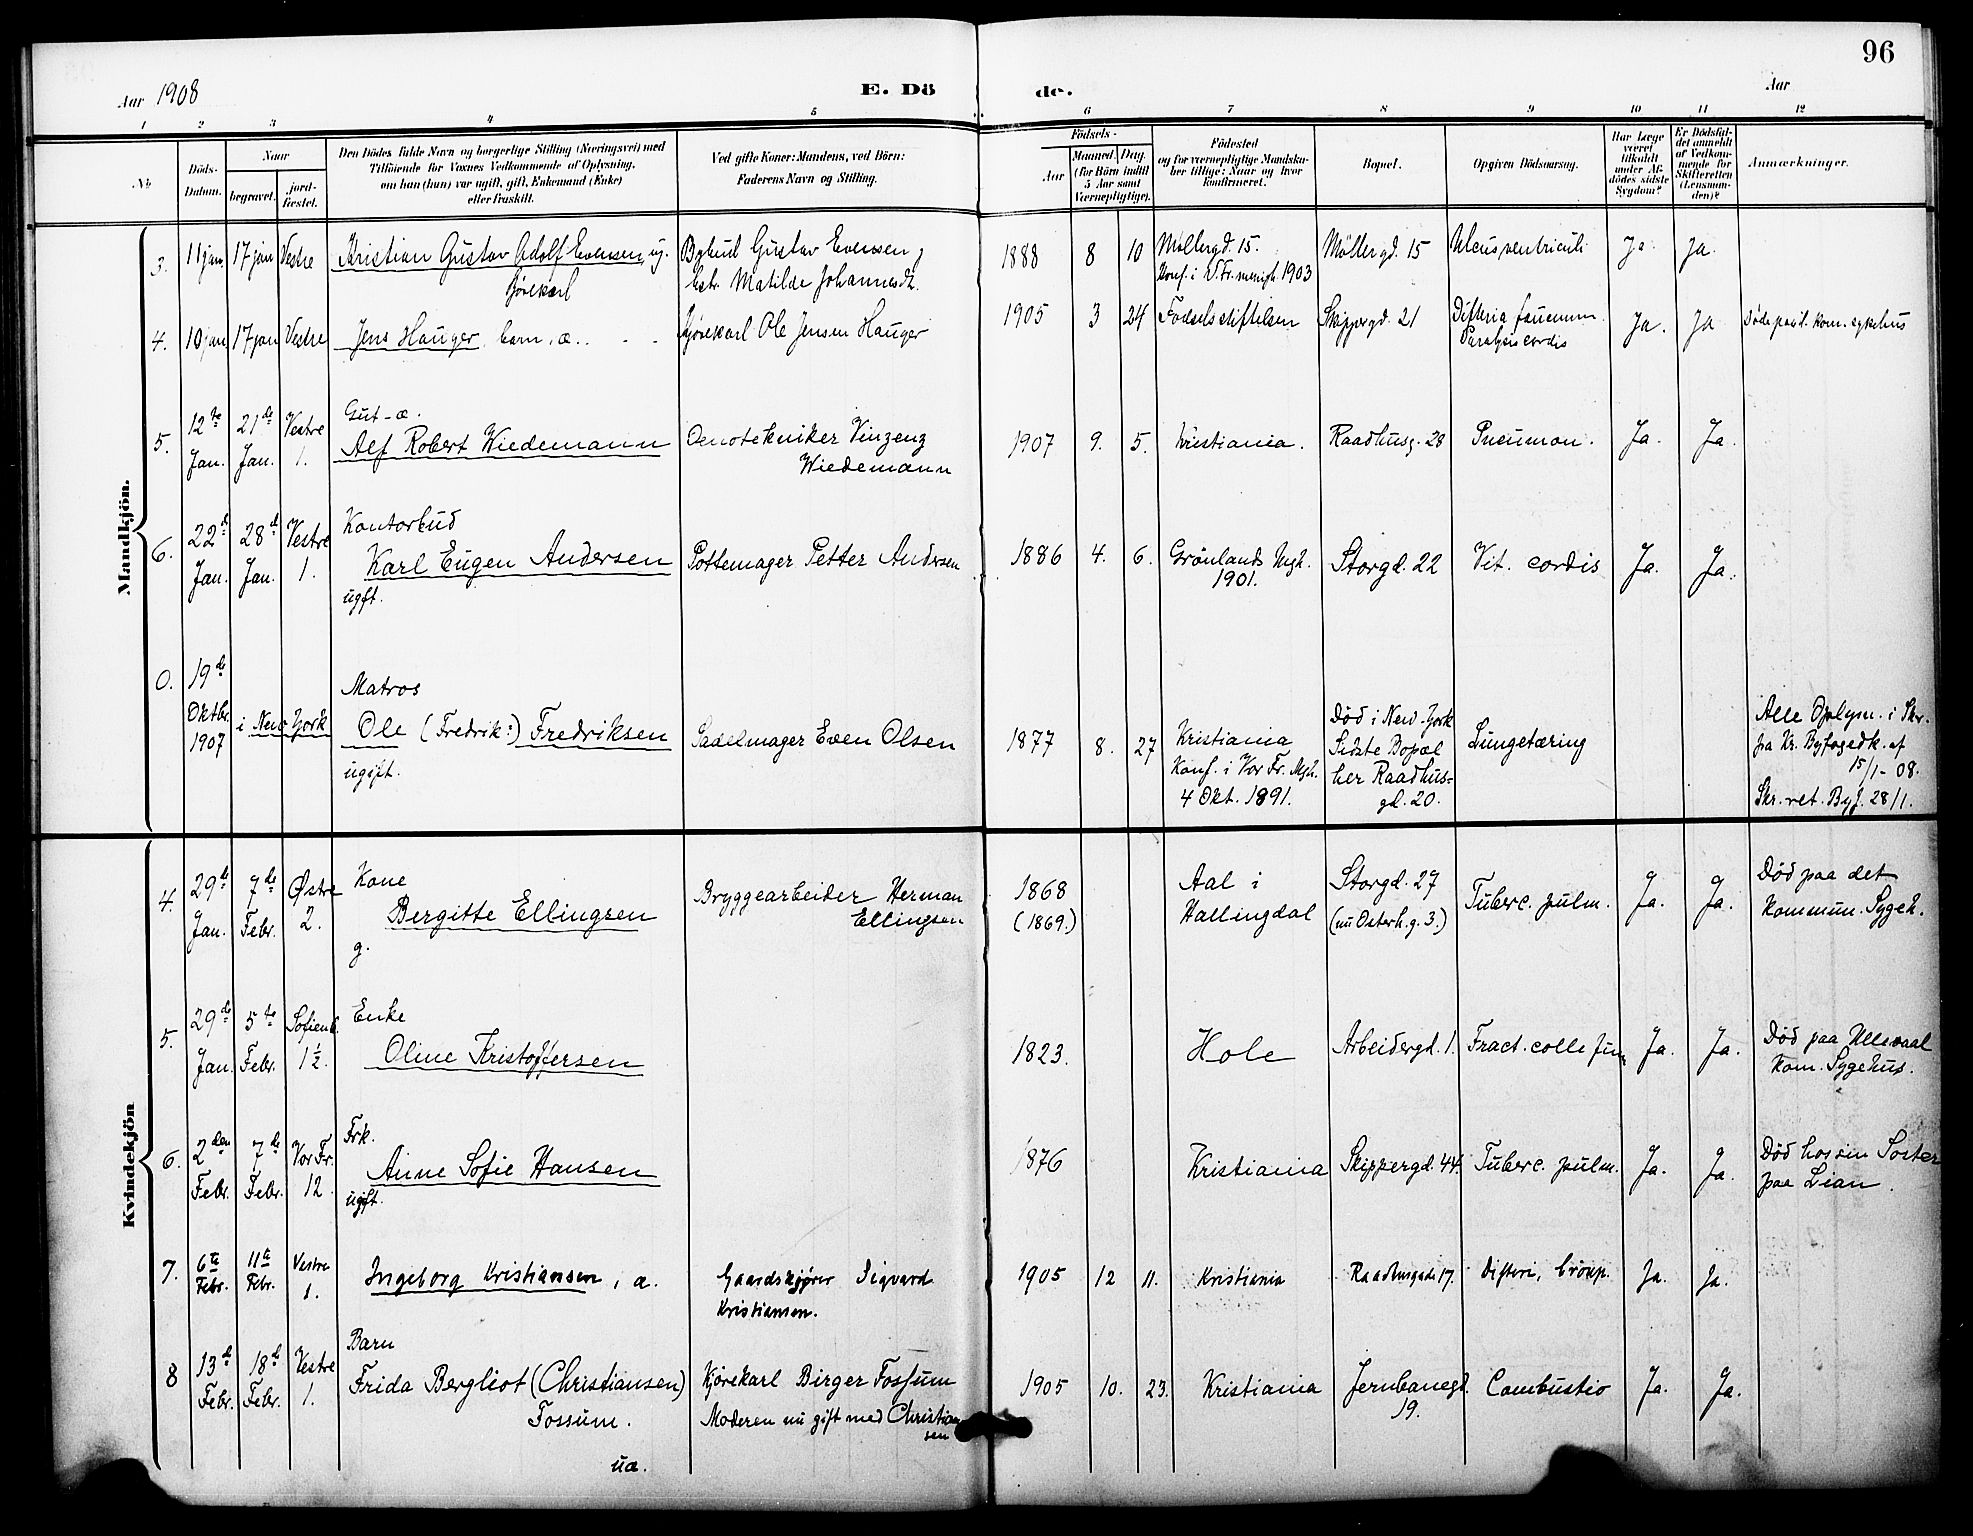 96
Aar 1908
E. Dö
de.
Aar
1 2 3 4 5 6 7 8 9 10 11 12
No
Döds-Datum.
Naar
begravet.
jord-fæstet.
Den Dödes fulde Navn og borgerlige Stilling (Næringsvei) med
Tilföiende for Voxnes Vedkommende af Oplysning,
om han (hun) var ugift, gift, Enkemand (Enke)
eller fraskilt.
Ved gifte Koner: Mandens, ved Börn:
Faderens Navn og Stilling.
Födsels-
Aar
Maaned. Dag.
(for Börn indtil
5 Aar samt
Værnepligtige).
Födested
og for værnepligtige Mandska-
ber tillige: Naar og hvor
konfirmeret.
Bopæl.
Opgiven Dödsaarsag.
Har Læge
været
tilkaldt
under Af-
dödes sidste
Sygdom?
Er Dödsfal-
det anmeldt
af Vedkom-
mende for
Skifteretten
(Lensman-
den)?
Anmærkninger.
Mandkjön.
3. 11 jan 17 jan Vestre Kristian Gustav Adolf Evensen, ug. Bybud Gustav Evensen, 1888 8 10 Möllergd. 15. Möllergd. 15 Ulcus ventriculi Ja. Ja.
kjørekarl
Matilde Johannesdt.
Konf. i V. Fr. menigh. 1903
4. 10 jan 17 jan Vestre Jens Hauger, barn, æ. Kjørekarl Ole Jensen Hauger 1905 3 24 Fødselsstiftelsen Skippergd. 21 Difteria faucium. Ja. Ja Døde paa Ul. kom. sykehus
Paralysis cordis
Gut - æ.
5. 12te Jan. 21de Jan. Vestre 1. Alf Robert Wiedemann Oenotekniker Vinzenz 1907 9. 5. Kristiania. Raadhusg. 28 Pneumon. Ja. Ja.
Wiedemann
Kontorbud
6. 22d Jan. 28d Jan. Vestre 1. Karl Eugen Andersen Pottemager Petter Andersen 1886 4. 6. Grönlands Mgh. Storgd. 22 Vit. cordis Ja. Ja.
1901.
ugft.
0. 19de Oktbr. 1907 i New York
Matros
Ole (Fredrik:) Fredriksen Sadelmager Even Olsen 1877 8. 27 Kristiania
Konf. i Vor Fr. Mgh.
4 Okt. 1891.
ugift.
Död i New-York
Sidste Bopæl
her Raadhus-
gd. 20.
Lungetæring
Alle Oplysn. i Skr.
fra Kr. Byfogedk. af
15/1 - 08.
Skr. ret. Byf. 28/1.
Kvindekjön
Kone
4. 29de Jan. 7de Febr. Østre 2. Bergitte Ellingsen Bryggearbeider Herman 1868 Aal i Storgd. 27 Tuberc. pulm. Ja. Ja. Död paa det
g.
Ellingsen
(1869.) Hallingdal (nu Osterh. g. 3.) Kommun. Sygeh.
Enke
5. 29de Jan. 5te Febr. Sofienb. 1½. Oline Kristoffersen 1823. Hole Arbeidergd. 1. Fract. colli Ja. Ja. Död paa Ullevaal
Kom. Sygehus.
Frk.
6. 2den Febr. 7de Febr. Vor Fr. 12. Anne Sofie Hansen 1876 Kristiania Skippergd. 44. Tuberc. pulm. Ja. Ja. Död hos sin Söster
ugft.
paa Lian.
7. 6te Febr. 11te Febr. Vestre 1. Ingeborg Kristiansen, æ. Gaardskjører Sigvard 1905 12 11. Kristiania Raadhusgade 17. Difteri, croup. Ja. Ja.
Kristiansen.
Barn
8 13d Febr. 18d Febr. Vestre 1. Frida Bergliot (Christiansen) Kjörekarl Birger Fossum 1905 10. 23. Kristiania Jernbanegd. Combustio Ja. Ja.
Fossum.
19.
Moderen nu gift med Christian
sen
uæ.